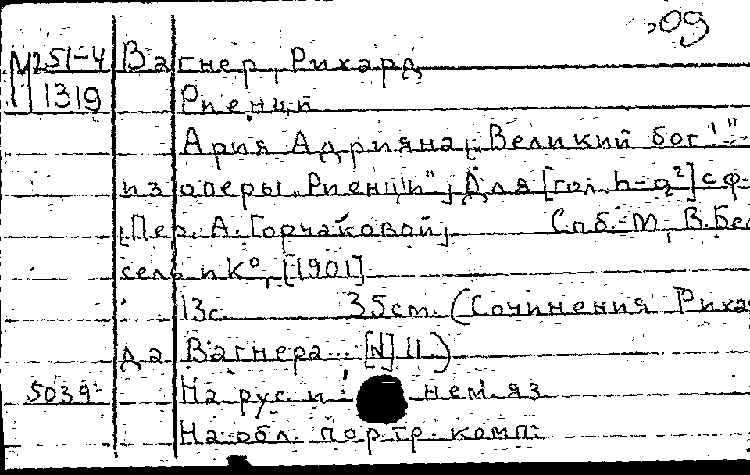 ,09
М251-4 Вагнер, Рихард
1319 Риенци
Ария Адрияна „Великий бог!"
из оперы „Риенци". Для [гол. h-g²] с ф-
Пер. А. Горчаковой. Спб.-М, В. Бес
сель и К°, [1901]
13с. 35см. (Сочинения Риха
да Вагнера... [N] 11.)
5039- На рус. и нем. яз
На обл. портр. комп.